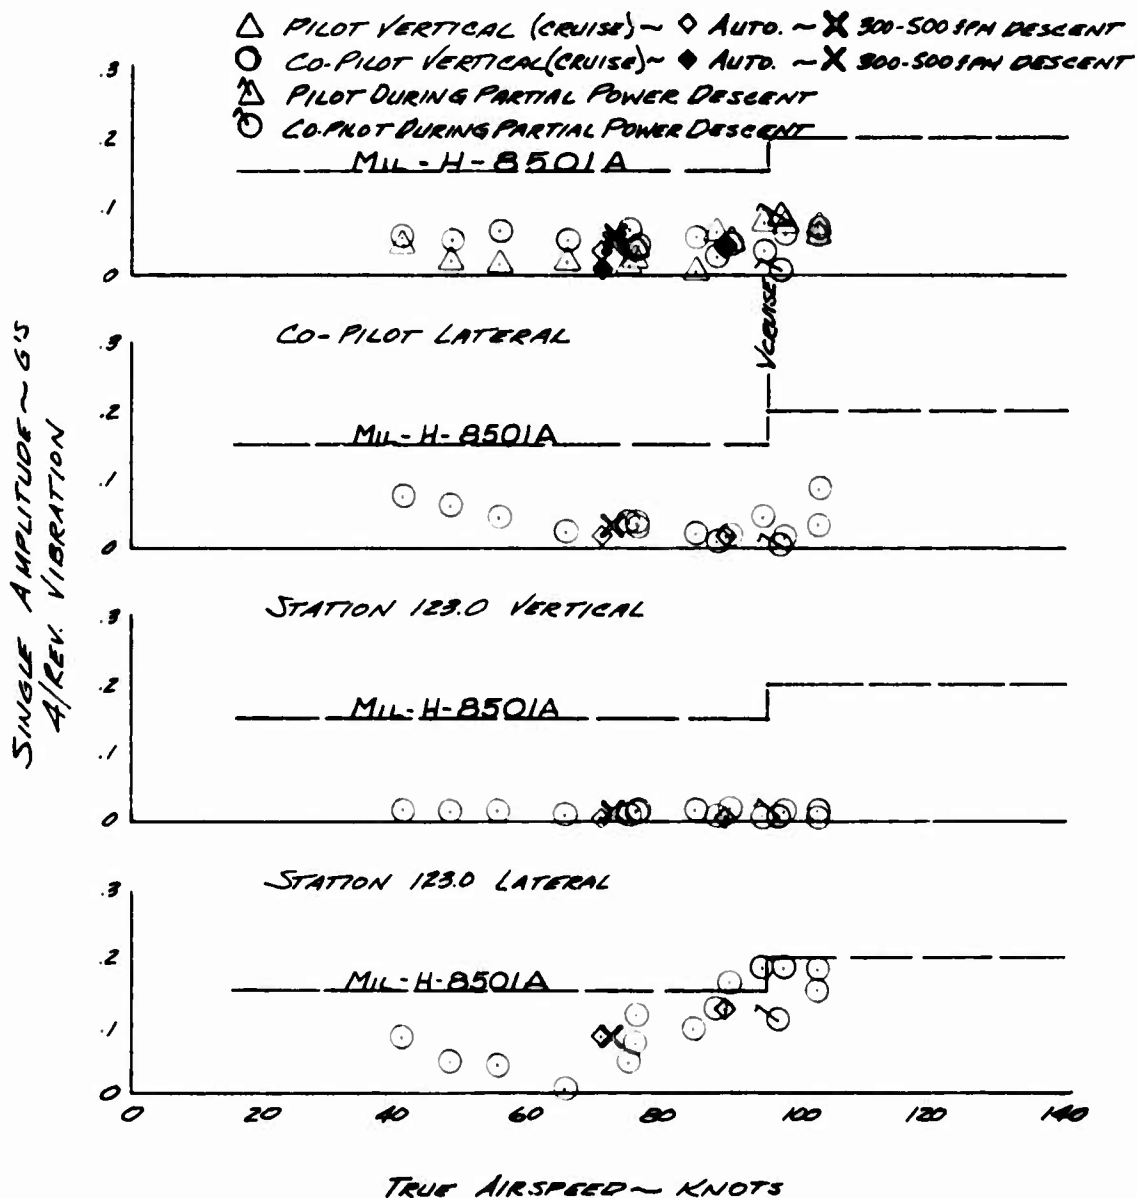 △ PILOT VERTICAL (CRUISE)~ ◇ AUTO. ~ X 300-500 FPM DESCENT
○ CO-PILOT VERTICAL (CRUISE)~ ◆ AUTO. ~ X 300-500 FPM DESCENT
PILOT DURING PARTIAL POWER DESCENT
CO-PILOT DURING PARTIAL POWER DESCENT
.3
.2
.1
0
MIL-H-8501A
VCRUISE
CO-PILOT LATERAL
.3
.2
.1
0
MIL-H-8501A
STATION 123.0 VERTICAL
.3
.2
.1
0
MIL-H-8501A
STATION 123.0 LATERAL
.3
.2
.1
0
MIL-H-8501A
0 20 40 60 80 100 120 140
TRUE AIRSPEED ~ KNOTS
SINGLE AMPLITUDE ~ G'S
4/REV. VIBRATION